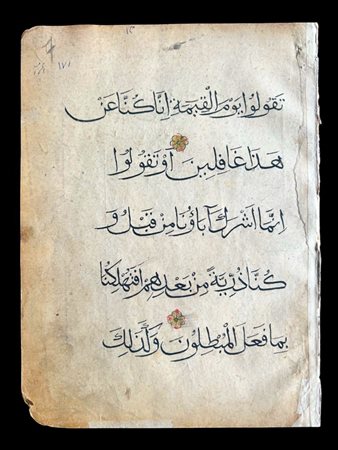 تقولوا يوم القيمة انا كنا عن
هذا غافلين او تقولوا
انما اشرك آباؤنا من قبل و
كنا ذرية من بعدهم افتهلكنا
بما فعل المبطلون وكذلك